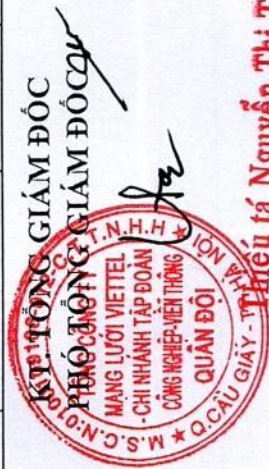 KT. TỔNG GIÁM ĐỐC
PHÓ TỔNG GIÁM ĐỐC
MẠNG LƯỚI VIETTEL
- CHI NHÁNH TẬP ĐOÀN
CÔNG NGHIỆP-VIỄN THÔNG
QUÂN ĐỘI
M.S.C.N:010
T.N.H.H
Q.CẦU GIẤY - TP HÀ NỘI
Thiếu tá Nguyễn Thị